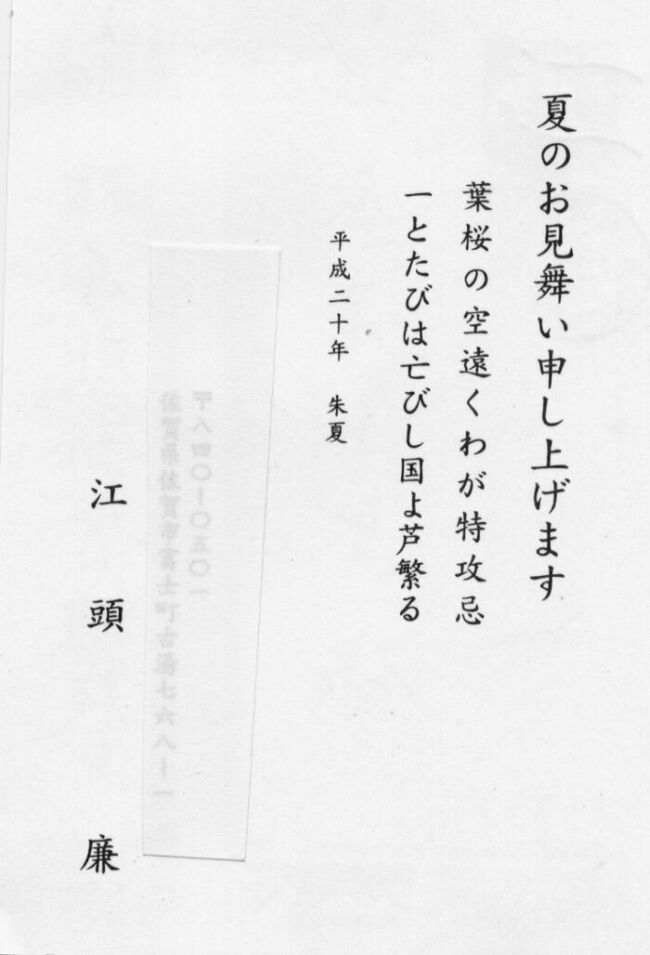 夏のお見舞い申し上げます
葉桜の空遠くわが特攻忌
一とたびは亡びし国よ芦繁る
平成二十年　朱夏
〒八四〇ー〇五〇一
佐賀県佐賀市富士町古湯七六八ー一
江頭　廉